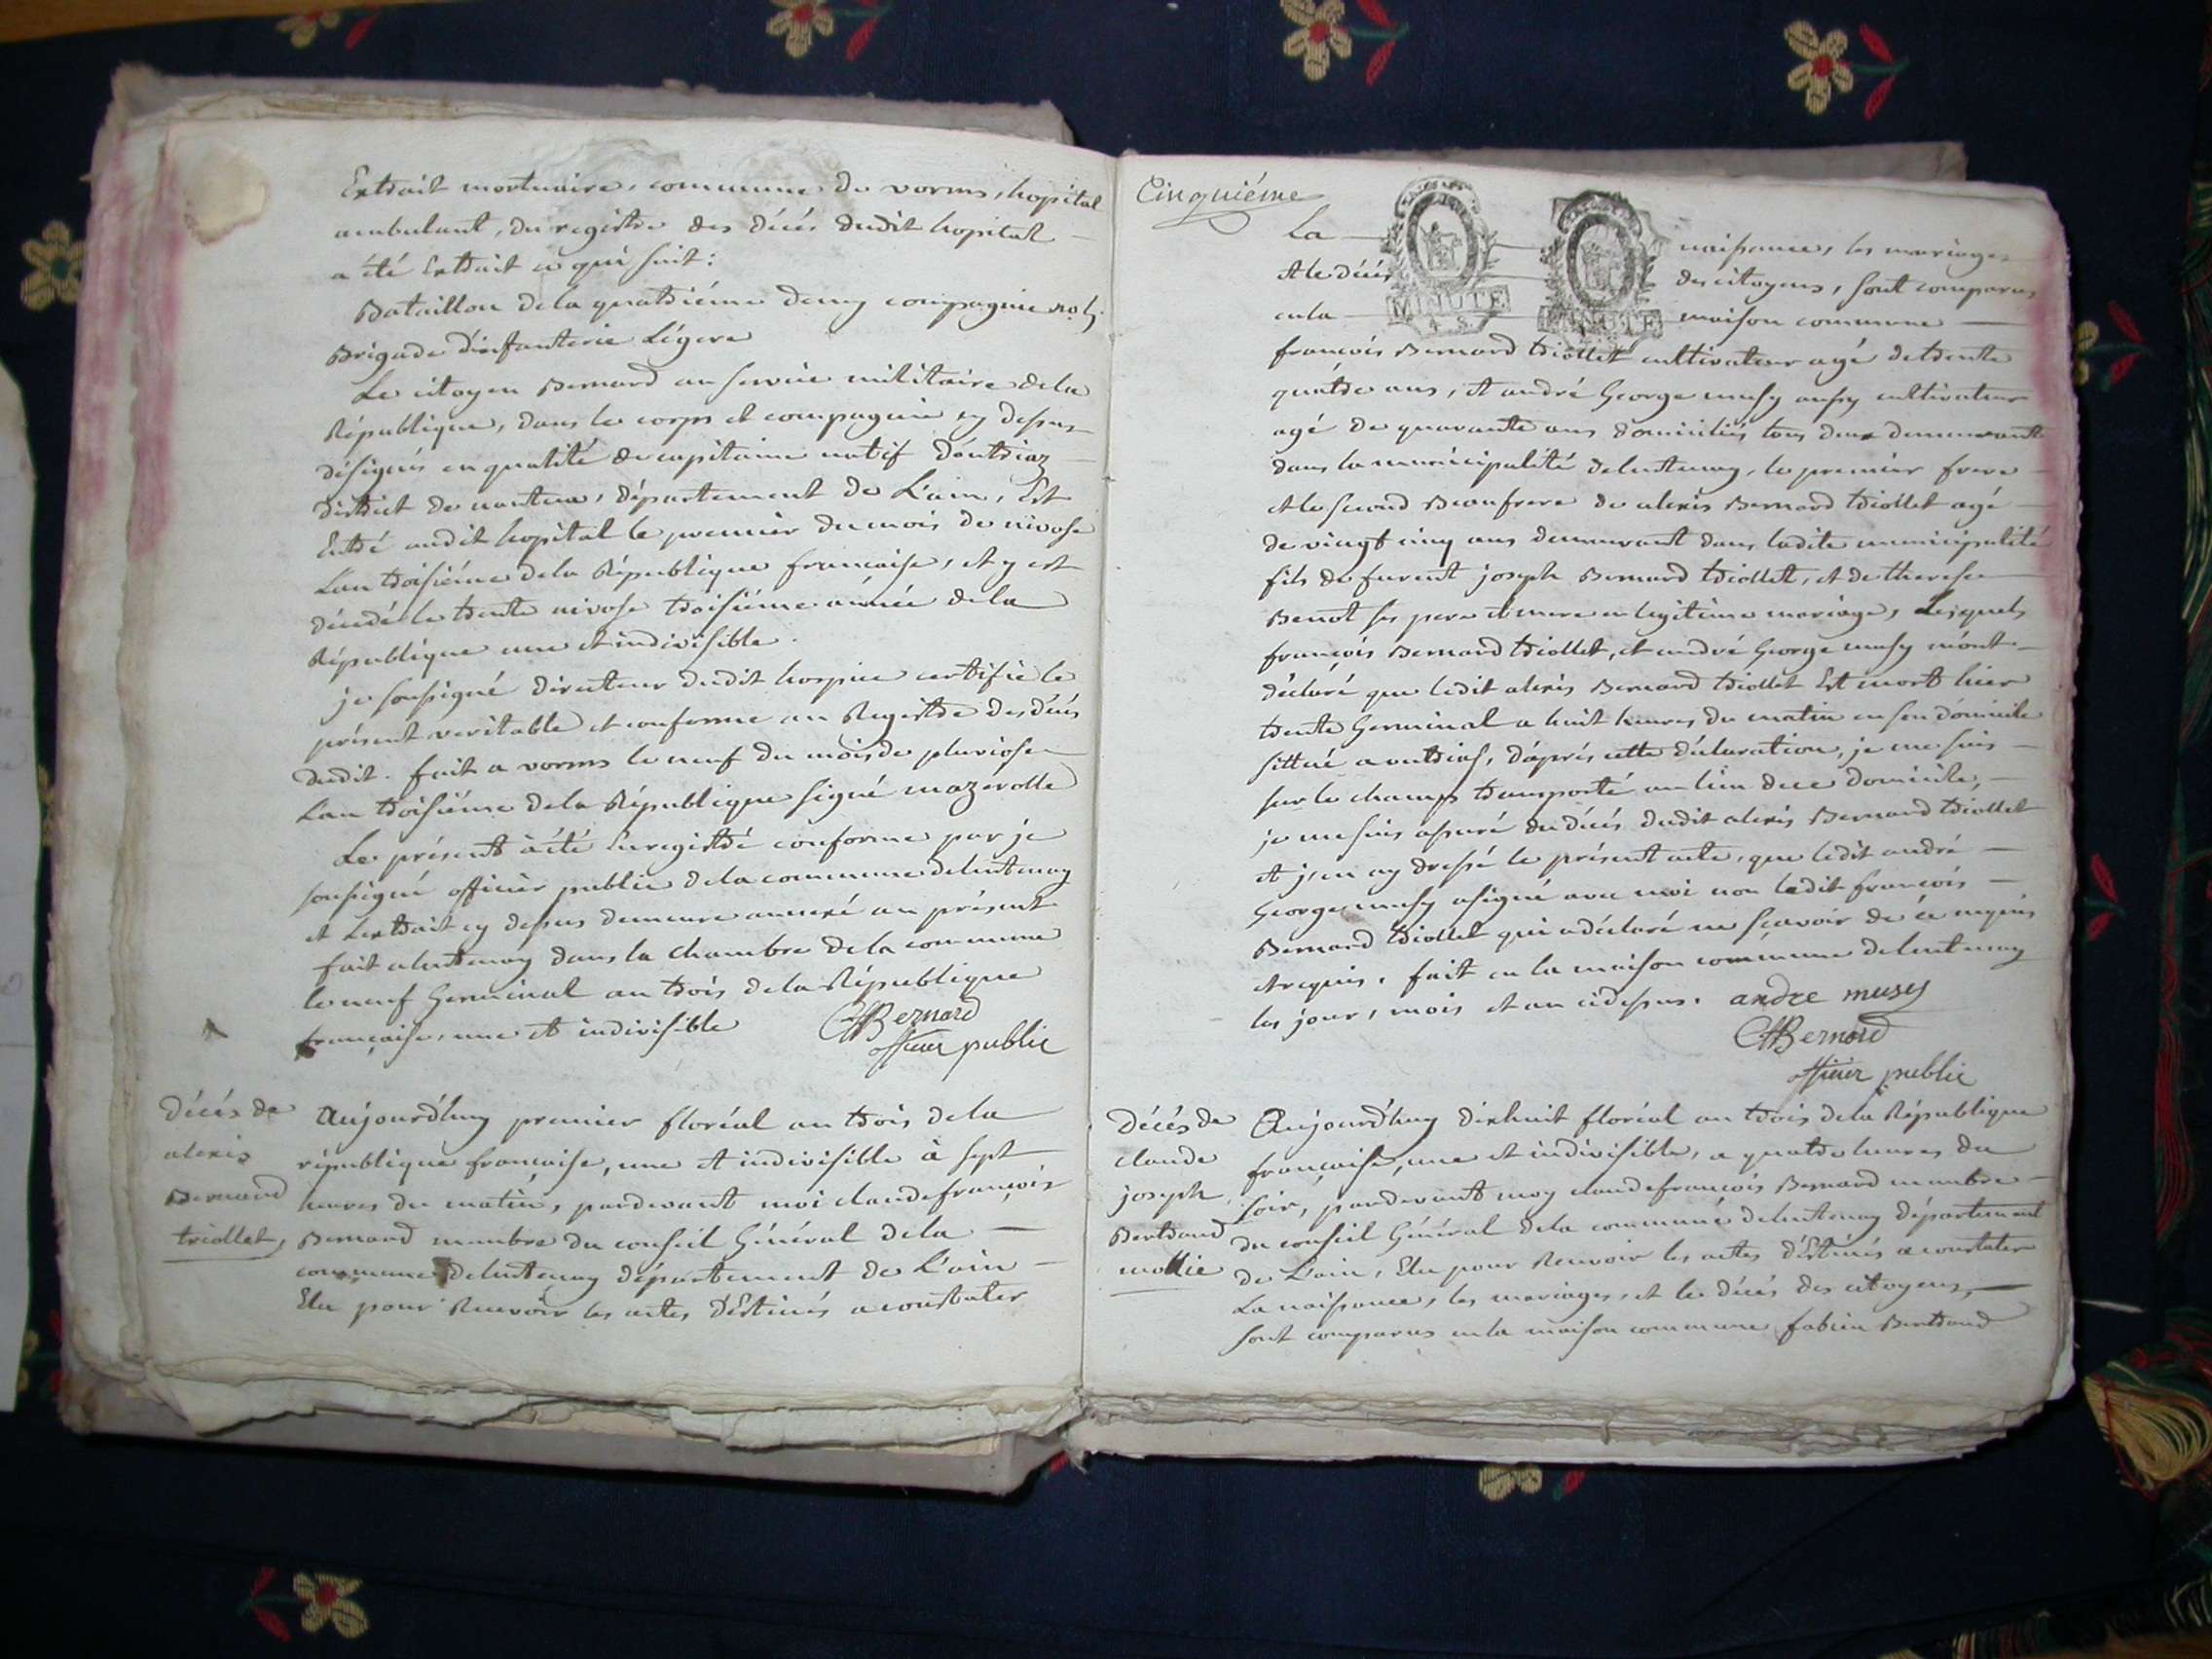 Extrait mortuaire, commune de vorms, hopital
ambulant, du registre des décés dudit hopital
a été Extrait ce qui suit:
Bataillon de la quatriéme demy compagnie
Brigade d'infanterie Légere
Le citoyen Bernard au service militaire de la
République, dans le corps et compagnie cy dessus
désignés en qualité de capitaine natif d'outriaz
district de nantua, département de L'ain, Est
Entré audit hopital le premier du mois de nivose
L'an troisiéme de la République francaise, et y est
décedé le trente nivose troisiéme année de la
République une et indivisible.
je soussigné directeur dudit hospice certifie le
présent veritable et conforme au Registre des décés
dudit. fait a vorms le neuf du mois de pluviose
L'an troisiéme de la République signé mazerolle
Le présent a été Enregistré conforme par je
soussigné officier public de la commune delantenay
et L'extrait cy dessus demeure annexé au présent
fait alantenay dans la chambre de la commune
le neuf Germinal an trois de la République
française, une et indivisible
Bernard
officier public
Décés de
alexis
Bernard
triollet
Aujourd'huy premier floréal an trois de la
république francaise, une et indivisible à sept
heures du matin, pardevant moi claude françois
Bernard membre du conseil Général de la
commune delantenay département de L'ain
Elu pour Recevoir les actes Déstinés a constater
Cinquiéme
La naissance, les mariages
et le décés des citoyens, sont comparus
en la maison commune
MINUTE
4 S.
MINUTE
francois Bernard triollet cultivateur agé de trente
quatre ans, et andré George musy aussy cultivateur
agé de quarante ans domiciliés tous deux demeurants
dans la municipalité delantenay, le premier frere
et le second Beaufrere de alexis Bernard triollet agé
de vingt cinq ans demeurant dans ladite municipalité
fils de furent joseph Bernard triollet, et de therese
Benot ses pere et mere en legitime mariage, Lesquels
françois Bernard triollet, et andré George musy m'ont
déclaré que ledit alexis Bernard triollet Est mort hier
trente Germinal a huit heures du matin en son domicile
sittué a outrias, d'aprés cette déclaration, je me suis
sur le champ transporté au lieu de ce domicile,
je me suis assuré du décés dudit alexis Bernard triollet
et j'en ay dressé le présent acte, que ledit andré
George musy a signé avec moi non ledit francois
Bernard triollet qui a déclaré ne sçavoir de ce enquis
et requis. fait en la maison commune delantenay
les jour, mois et an ci dessus. andre musy
Bernard
officier public
décés de
claude
joseph
Bertrand
mollie
Aujourd'huy dixhuit floréal an trois de la République
françaisse, une et indivisible, a quatre heures du
soir, pardevant moy claude francois Bernard membre
du conseil Général de la commune delantenay département
de L'ain, Elu pour Recevoir les actes d'Estinés a constater
La naissance, les mariages, et le décés des citoyens,
sont comparus en la maison commune fabien Bertrand